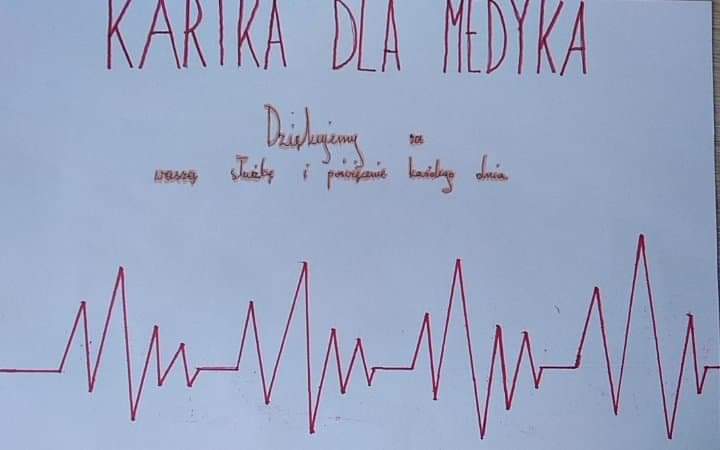 KARTKA DLA MEDYKA
Dziękujemy za
waszą służbę i poświęcenie każdego dnia